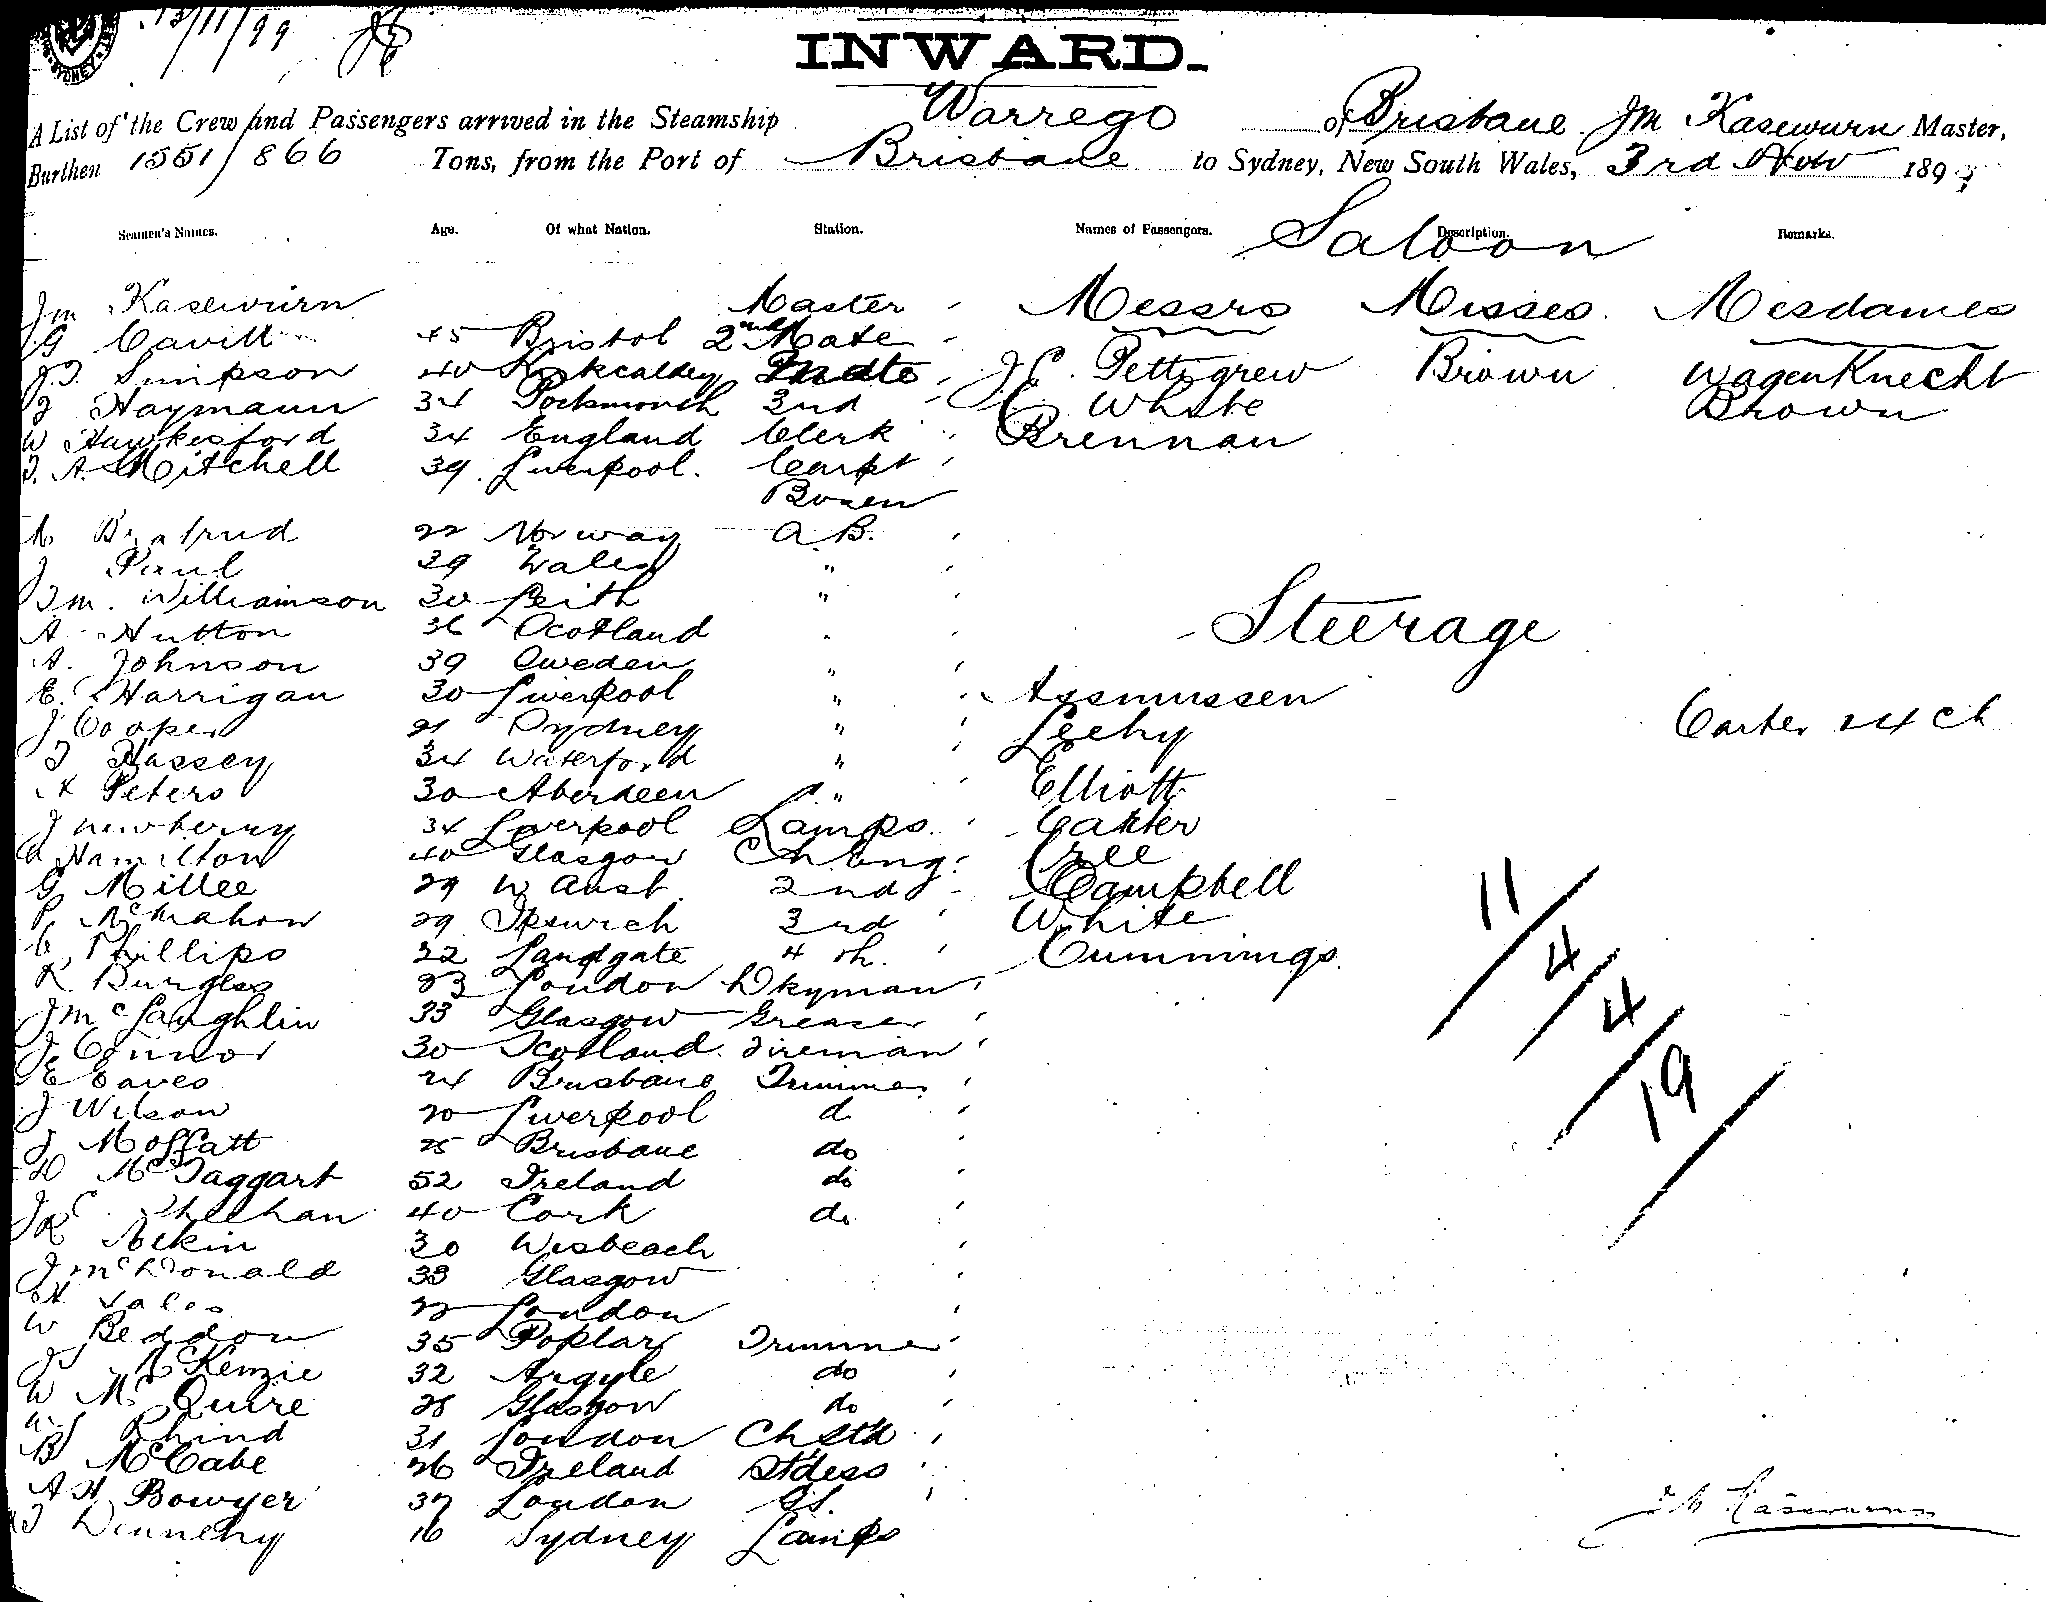 13/11/99
INWARD.
A List of the Crew and Passengers arrived in the Steamship Warrego of Brisbane Jm Kasewurn Master,
Burthen 1551/866 Tons, from the Port of Brisbane to Sydney, New South Wales, 3rd Nov 189
Seamen's Names. Age. Of what Nation. Station. Names of Passengers. Description. Remarks.
Saloon
Jm Kasewurn Master Messrs Misses Mesdames
G Cavill 45 Bristol 2nd Mate
J.T. Simpson 40 Kirkcaldy Mate J C Pettigrew Brown Wagenknecht
Haymann 34 Portsmouth 3rd C White Brown
W Hawkesford 34 England Clerk Brennan
T. A. Mitchell 39 Liverpool. Carpt
Bosen
22 Norway A.B.
J Paul 29 Wales "
Jm. Williamson 30 Leith "
Steerage
A Hutton 36 Scotland "
A. Johnson 39 Sweden "
E. Harrigan 30 Liverpool " Assmussen
J Cooper 21 Sydney " Leehy Carter & 4 ch
T Hassey 34 Waterford "
A Peters 30 Aberdeen " Elliott
J Newberry 34 Liverpool Lamps. Carter
A Hamilton 40 Glasgow Ch Eng. Cree
G Millee 29 W Aust. 2nd Campbell
P McMahon 29 Ipswich 3rd White
C Phillips 22 Landgate 4 th. Cummings.
R Burgess 23 London Dkyman
J McLaughlin 33 Glasgow Greaser
J Connor 30 Scotland. Fireman
E Eaves 24 Brisbane Trimmer
J Wilson 20 Liverpool d
J Moffatt 25 Brisbane do
D McTaggart 52 Ireland do
J C Sheehan 40 Cork do
R Aikin 30 Wisbeach
J McDonald 33 Glasgow
22 London
W Beddow 35 Poplar Trimmer
J McKenzie 32 Argyle do
W McQuire 28 Glasgow do
W J Rhind 31 London Ch Std
B McCabe 26 Ireland Stdess
A H Bowyer 37 London
T Dennehy 16 Sydney Lamps
11/
4/
4/
19/
J M Kasewurn